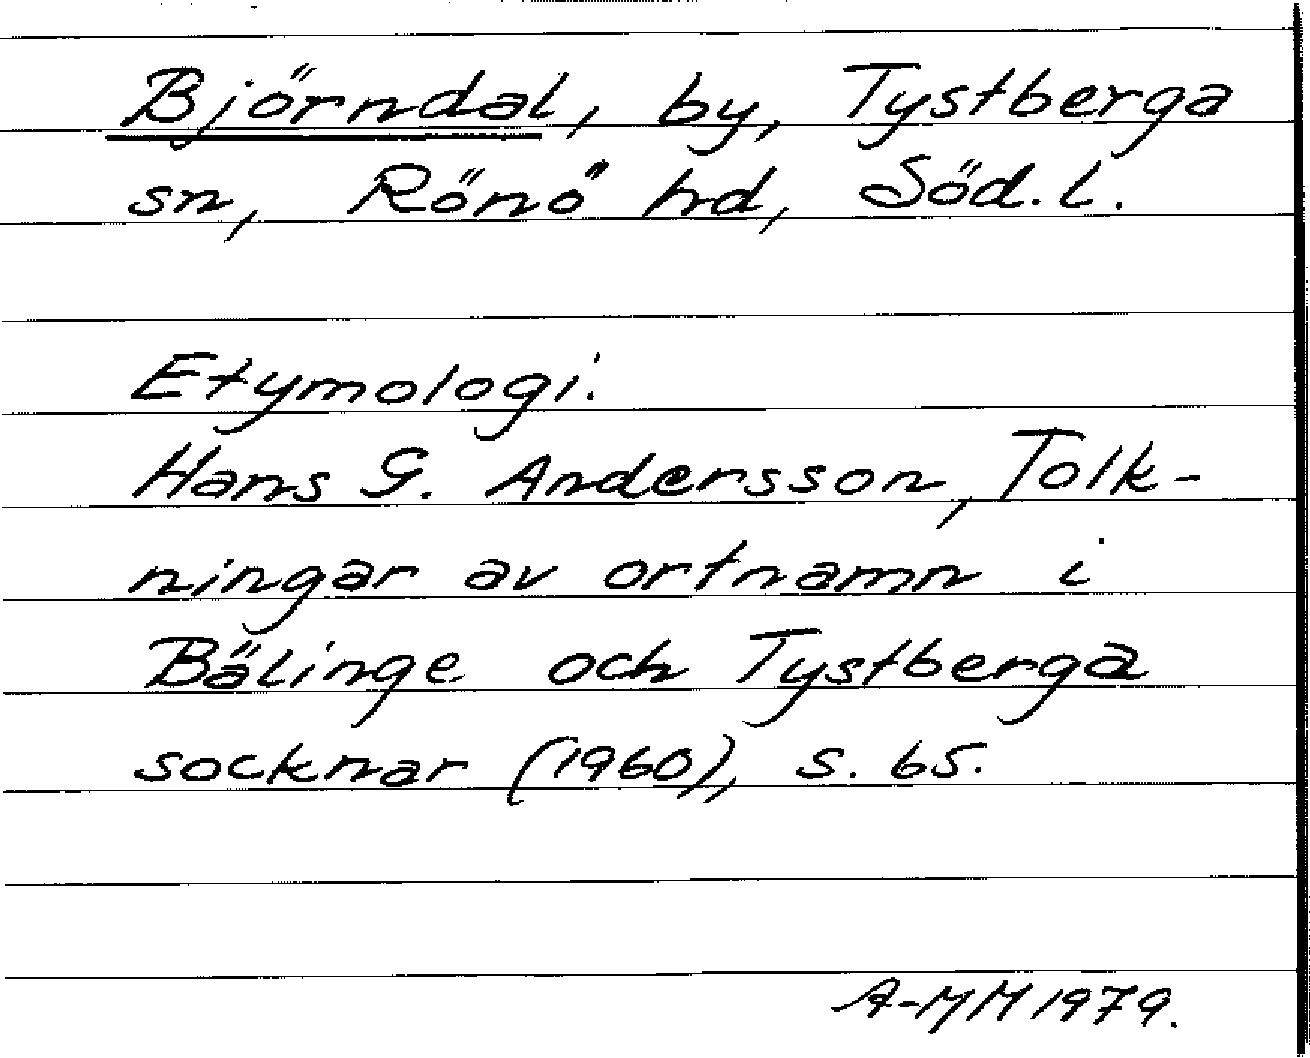 Björndal, by, Tystberga
sn, Rönö hd, Söd.l.
Etymologi.
Hans G. Andersson, Tolk-
ningar av ortnamn i
Bälinge och Tystberga
socknar (1960), s. 65.
A-MM 1979.